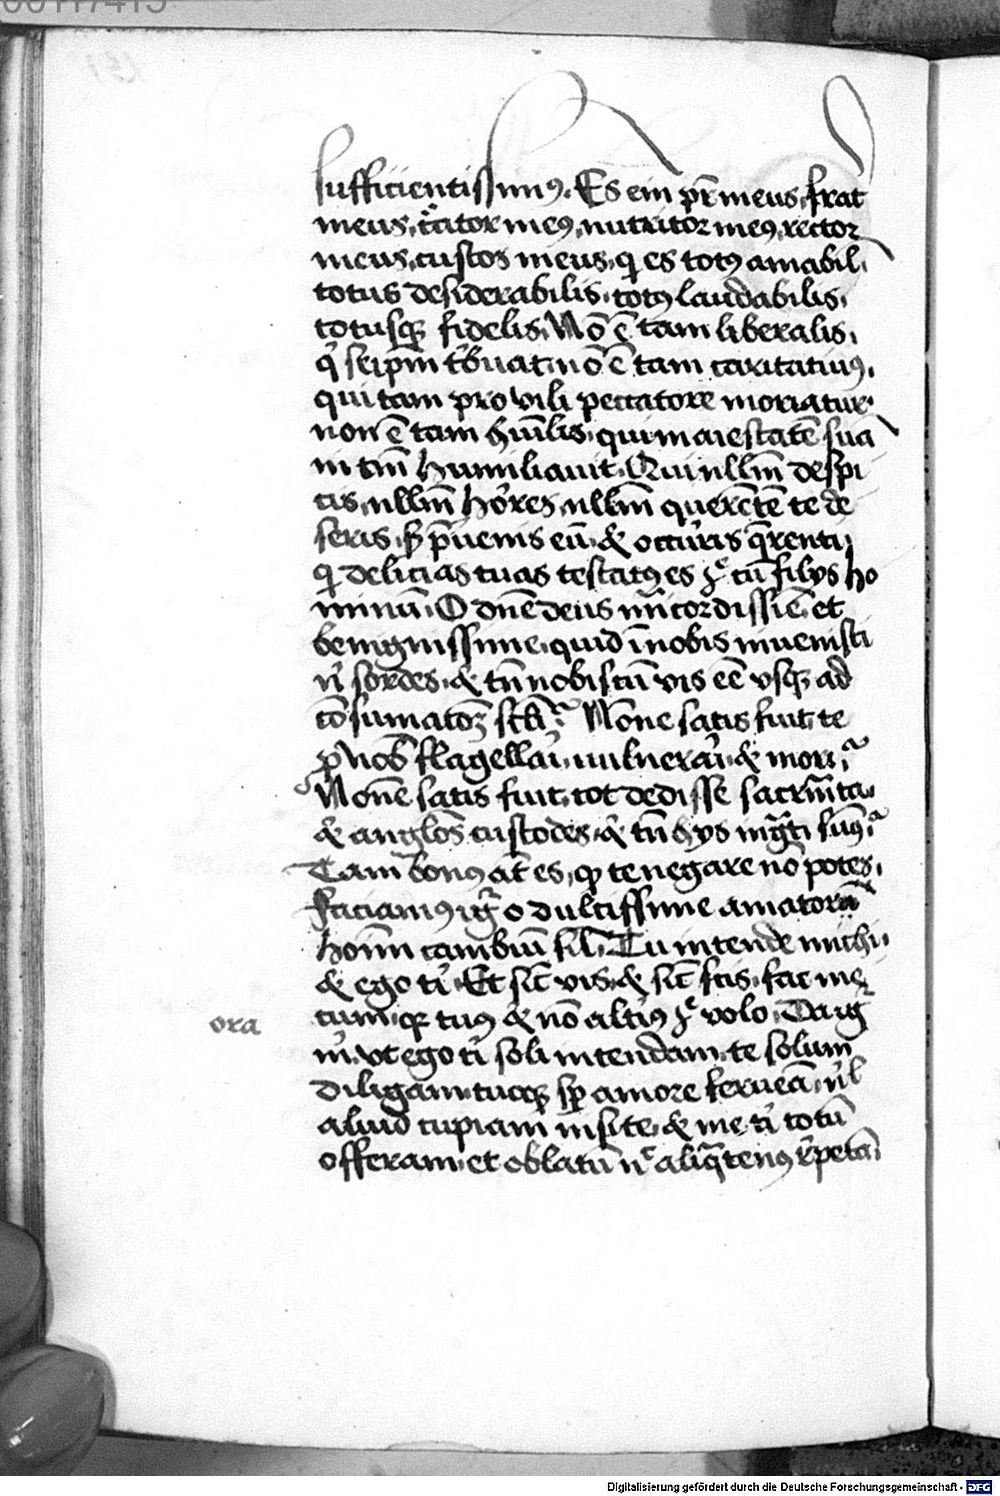 00117415
sufficientissimꝰ. Es eīm pr̄ meus, frat
meus, t̄ctor meꝰ, nutritor meꝰ, rector
meus, custos meus, qͥ es totꝰ amabil.
totus desiderabilis, totꝰ laudabilis,
totusqꝫ fidelis. Nō ē tam liberalis,
qͥ seipm̄ tͥbuat, nō ē tam caritatiuꝰ,
qui tam pro vili peccatore moriatur
non ē tam hūilis, qui maiestatē suā
in tm̄ humiliauit. Qui nllm̄ despi
cis, nllm̄ horres, nllm̄ querētē te de
seris, sꝫ p̄uenis eū, & occurris q̄renti,
qͥ delicias tuas testatꝰ es eē cū filijs ho
minū. O dn̄e deus mīcordissīe et
benignissime, quid ī nobis inuenisti
nͥ sordes, & tn̄ nobiscū vis eē vsqꝫ ad
cōsumatōꝫ sc̄li. Nōne satis fuit te
ꝓ nob̄ flagellaͥ, uulneraͥ, & mori.
Nonē satis fuit, tot dedisse sacrm̄ta,
& angl̄os custodes, & tn̄ hijs īgͣti sumꝰ.
Tam bonꝰ āt es, qꝫ te negare nō potes,
faciamꝰ igͥ o dulcissime amator
hoīm cambiū sīl. Tu intende michi,
& ego tͥ. Et sic̄ vis, & sic̄ scis, fac me
tuum, qꝛ tuꝰ & nō altīꝰ eē volo. Da igͥ
ora
mͥ, vt ego tͥ soli intendam, te solum
diligam, tuoqꝫ sp̄ amore ferueā, nͥl
aliud cupiam nisi te, & me tͥ totū
offeram, et oblatū nͨ aliqͣtenꝰ rͥpetā,
Digitalisierung gefördert durch die Deutsche Forschungsgemeinschaft - DFG